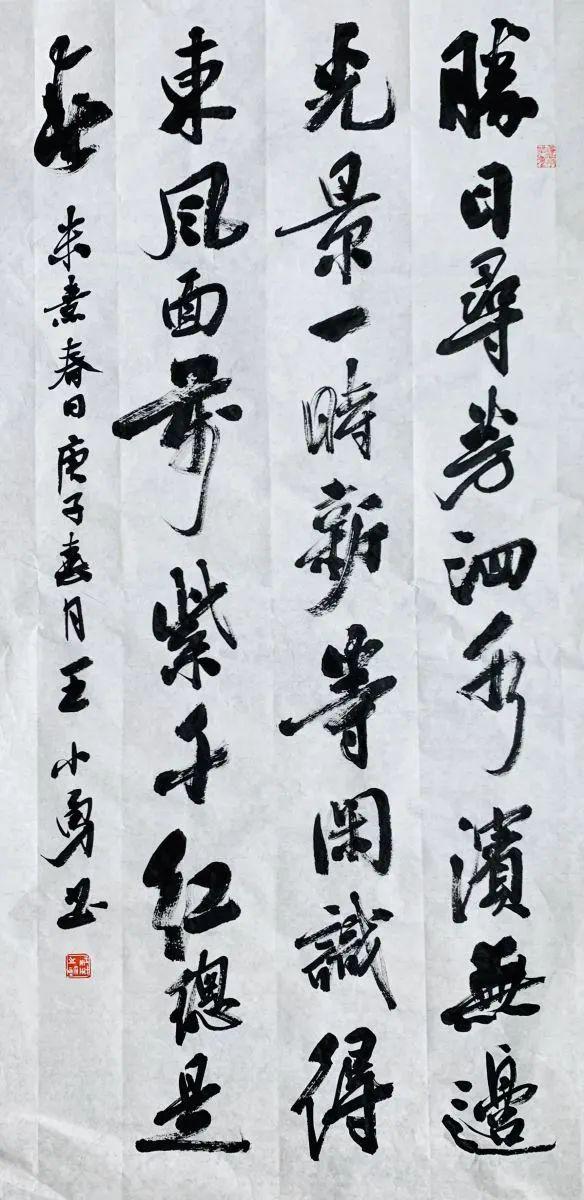 勝日尋芳泗水濱無邊
光景一時新等閑識得
東風面萬紫千紅總是
春 朱熹春日庚子春月王小勇书